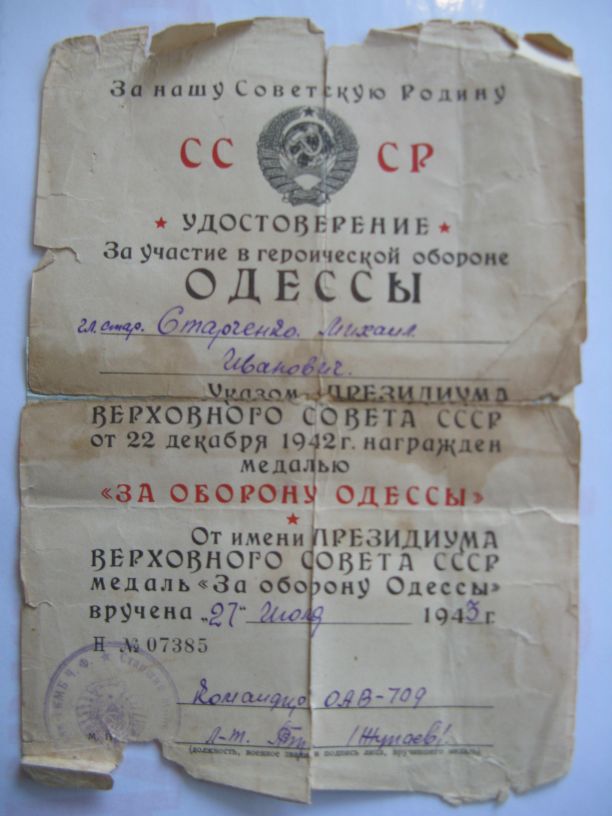 За нашу Советскую Родину
СС СР
★ УДОСТОВЕРЕНИЕ ★
За участие в героической обороне
ОДЕССЫ
гл. стар. Старченко. Михаил.
Иванович.
Указом ПРЕЗИДИУМА
ВЕРХОВНОГО СОВЕТА СССР
от 22 декабря 1942 г. награжден
медалью
«ЗА ОБОРОНУ ОДЕССЫ»
★
От имени ПРЕЗИДИУМА
ВЕРХОВНОГО СОВЕТА СССР
медаль «За оборону Одессы»
вручена „27“ Июля 1943 г.
Н № 07385
Ч.Ф. ★ Старший
М. П.
Командир ОАВ-709
л-т.
(должность, военное звание и подпись лица, вручившего медаль)